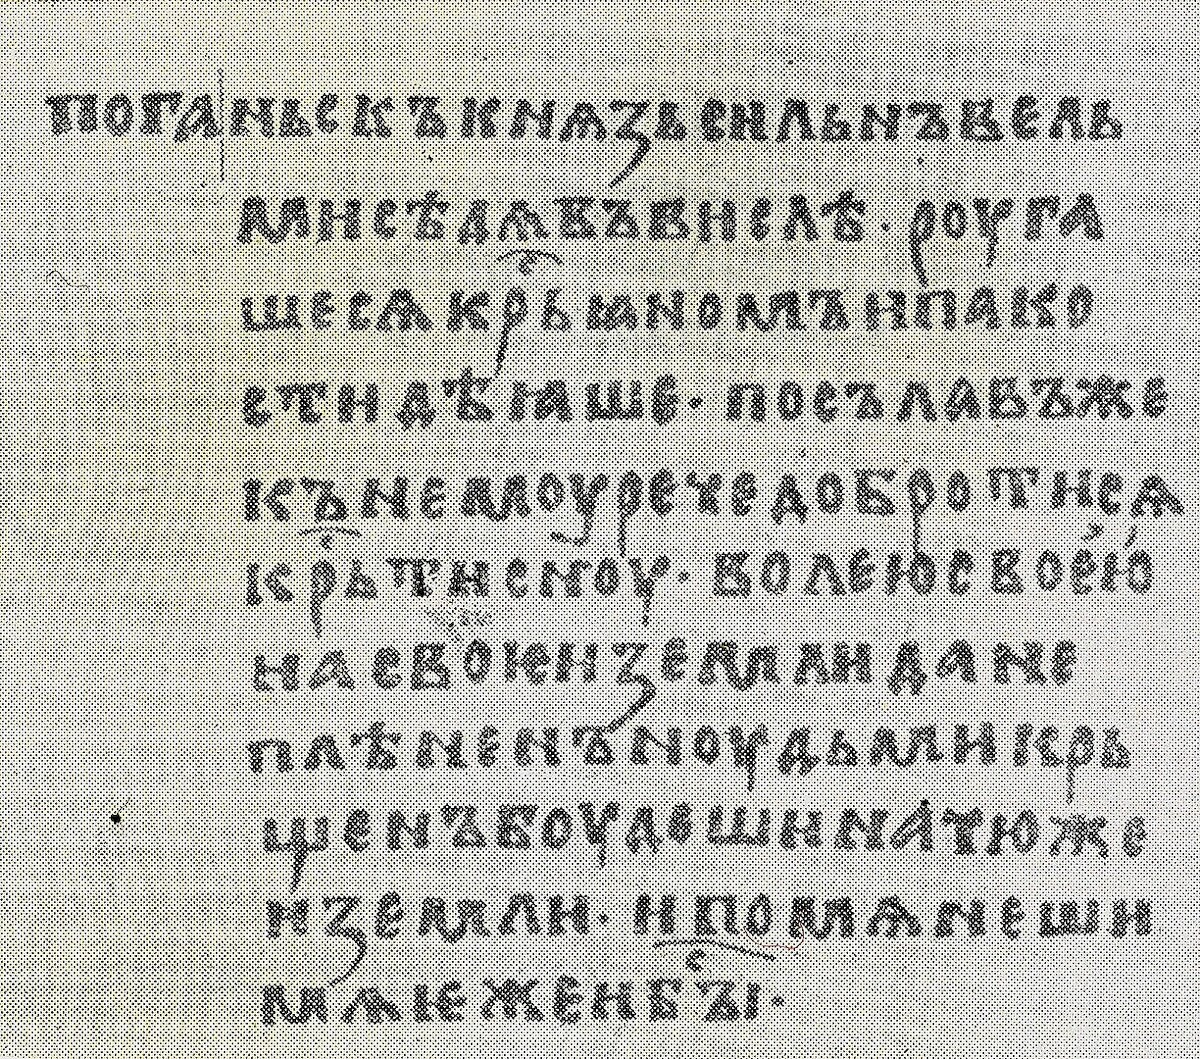 поганьскъкнѧзьсильнъвель
мисѣдѧвъвислѣ·роуга
шесѧкрьⷭ҇ꙗномъипако
стидѣꙗше·посълавъже
кънемоуречедобротисѧ
крьⷭ҇тисноу·волеюсвоею
насвоѥиземлиданe
плѣненъноудьмикрь
щенъбоудешиначюже
иземли·ипомѧнеши
мѧѥжеибꙑⷭ҇·